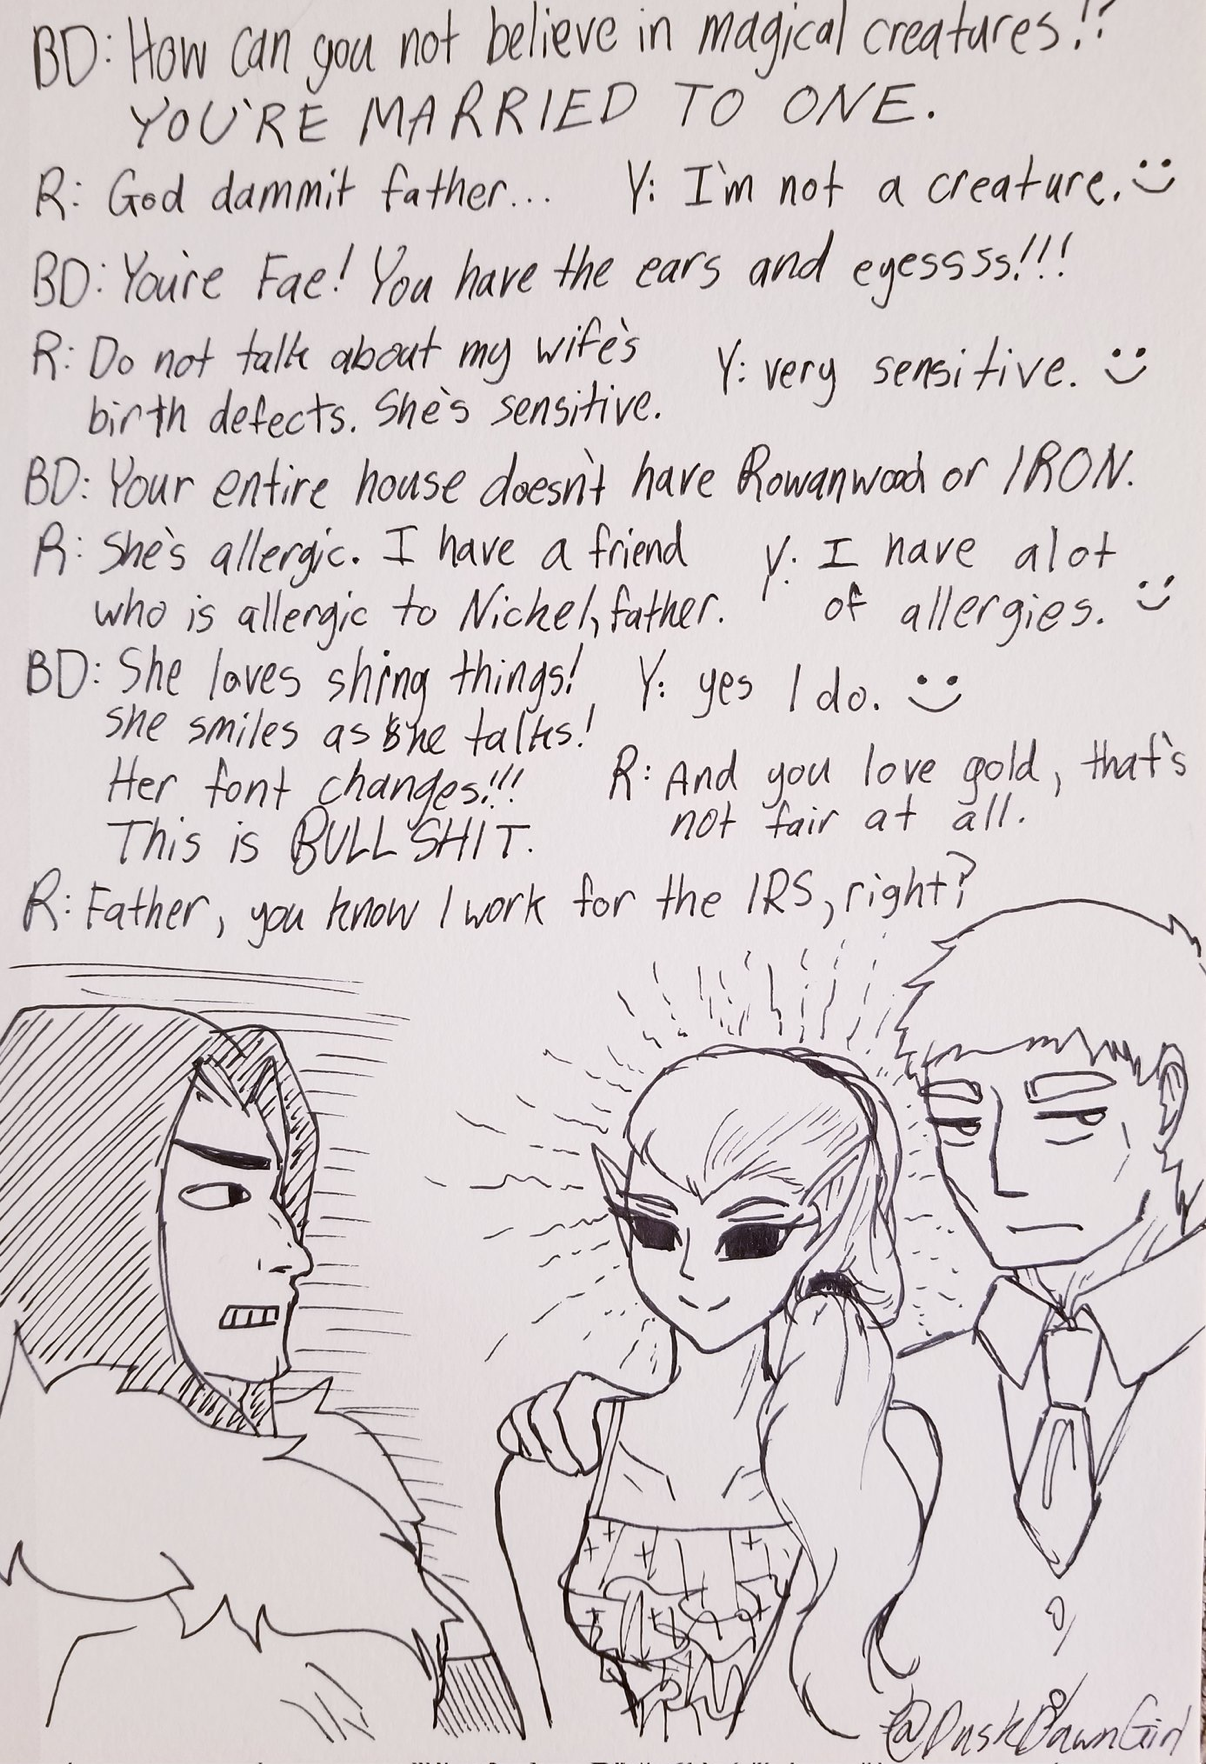 BD: How can you not believe in magical creatures!?
YOU'RE MARRIED TO ONE.
R: God dammit father... Y: I'm not a creature. :)
BD: You're Fae! You have the ears and eyessss!!!
R: Do not talk about my wife's
birth defects. She's sensitive.
Y: very sensitive. :)
BD: Your entire house doesn't have Rowanwood or IRON.
R: She's allergic. I have a friend
who is allergic to Nickel, father.
Y: I have alot
of allergies. :)
BD: She loves shing things!
she smiles as she talks!
Her font changes!!!
This is BULLSHIT.
Y: yes I do. :)
R: And you love gold, that's
not fair at all.
R: Father, you know I work for the IRS, right?
@DuskDawnGirl